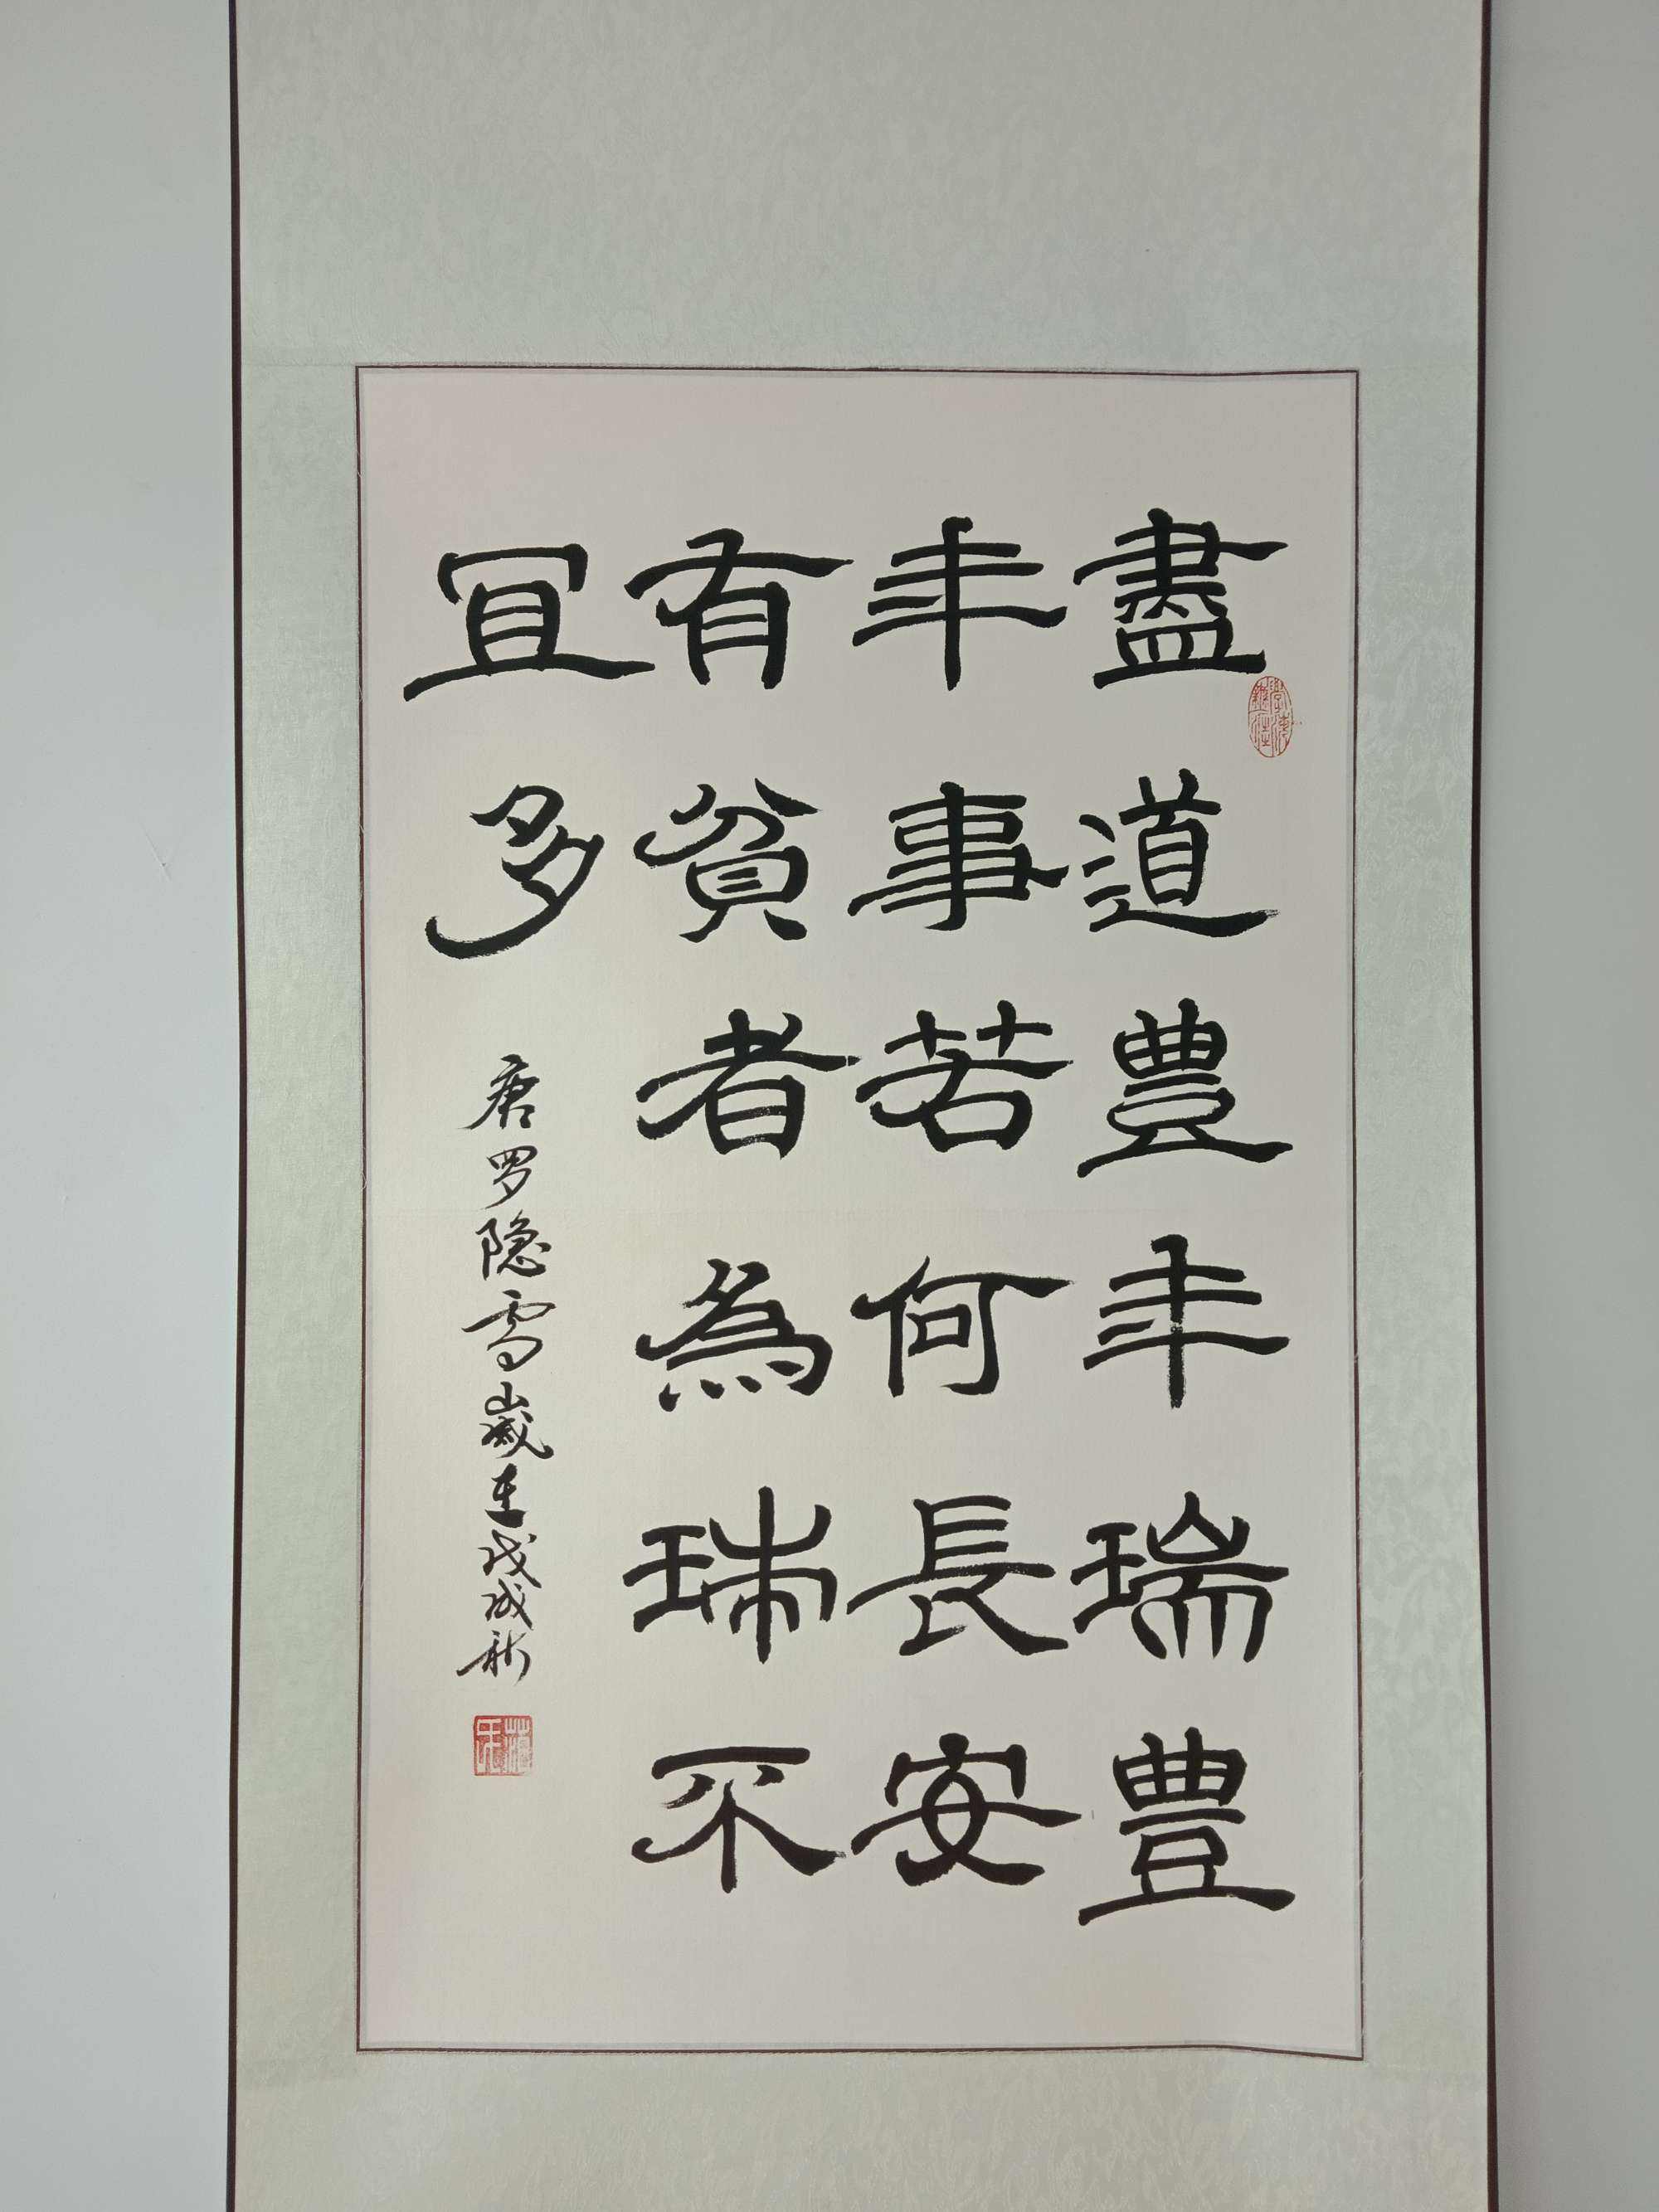 盡道豊年瑞豊
年事若何長安
有貧者為瑞不
冝多
唐罗隐雪歲在戊戌